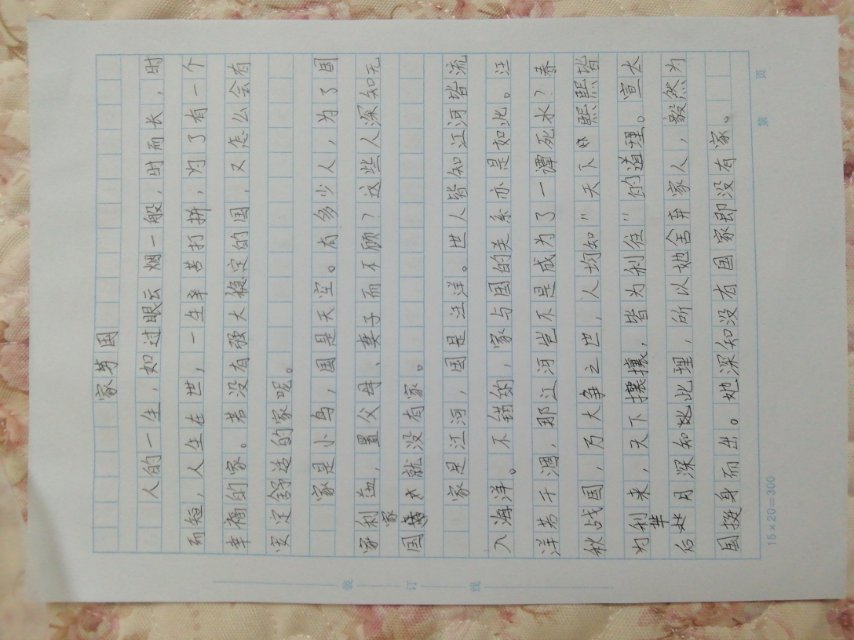 家与国
人的一生，如过眼云烟一般，时而长，时
而短，人生在世，一生辛苦打拼，为了有一个
幸福的家。若没有强大稳定的国，又怎么会有
安定舒适的家呢。
家是小鸟，国是天空。有多少人，为了国
家利益，置父母、妻子而不顾？这些人深知无
国家就没有家。
家是江河，国是汪洋。世人皆知江河皆流
入海洋。不错的，家与国的关系亦是如此。汪
洋若干涸，那江河岂不是成为了一谭死水？春
秋战国，乃大争之世，人均知"天下熙熙皆
为利来，天下攘攘，皆为利往"的道理。宣太
后芈月深知此理，所以她舍弃家人，毅然为
国挺身而出。她深知没有国家即没有家。
15×20=300
第 页
装 订 线